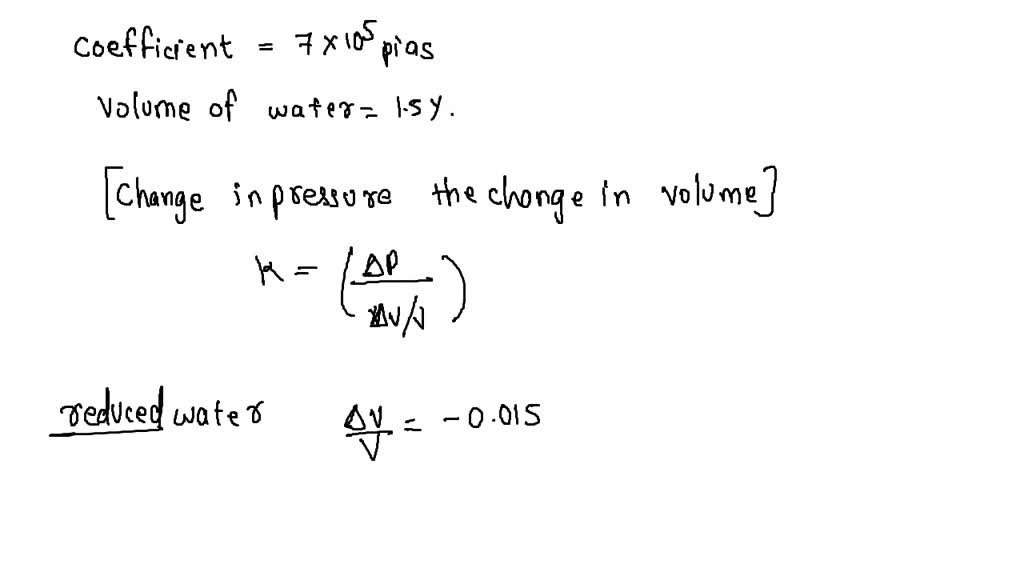 coefficient = 7 × 10⁵ pias
Volume of water = 1.5 Y.
[Change in pressure the change in volume]
K = (ΔP / ΔV/V)
reduced water ΔV/V = -0.015